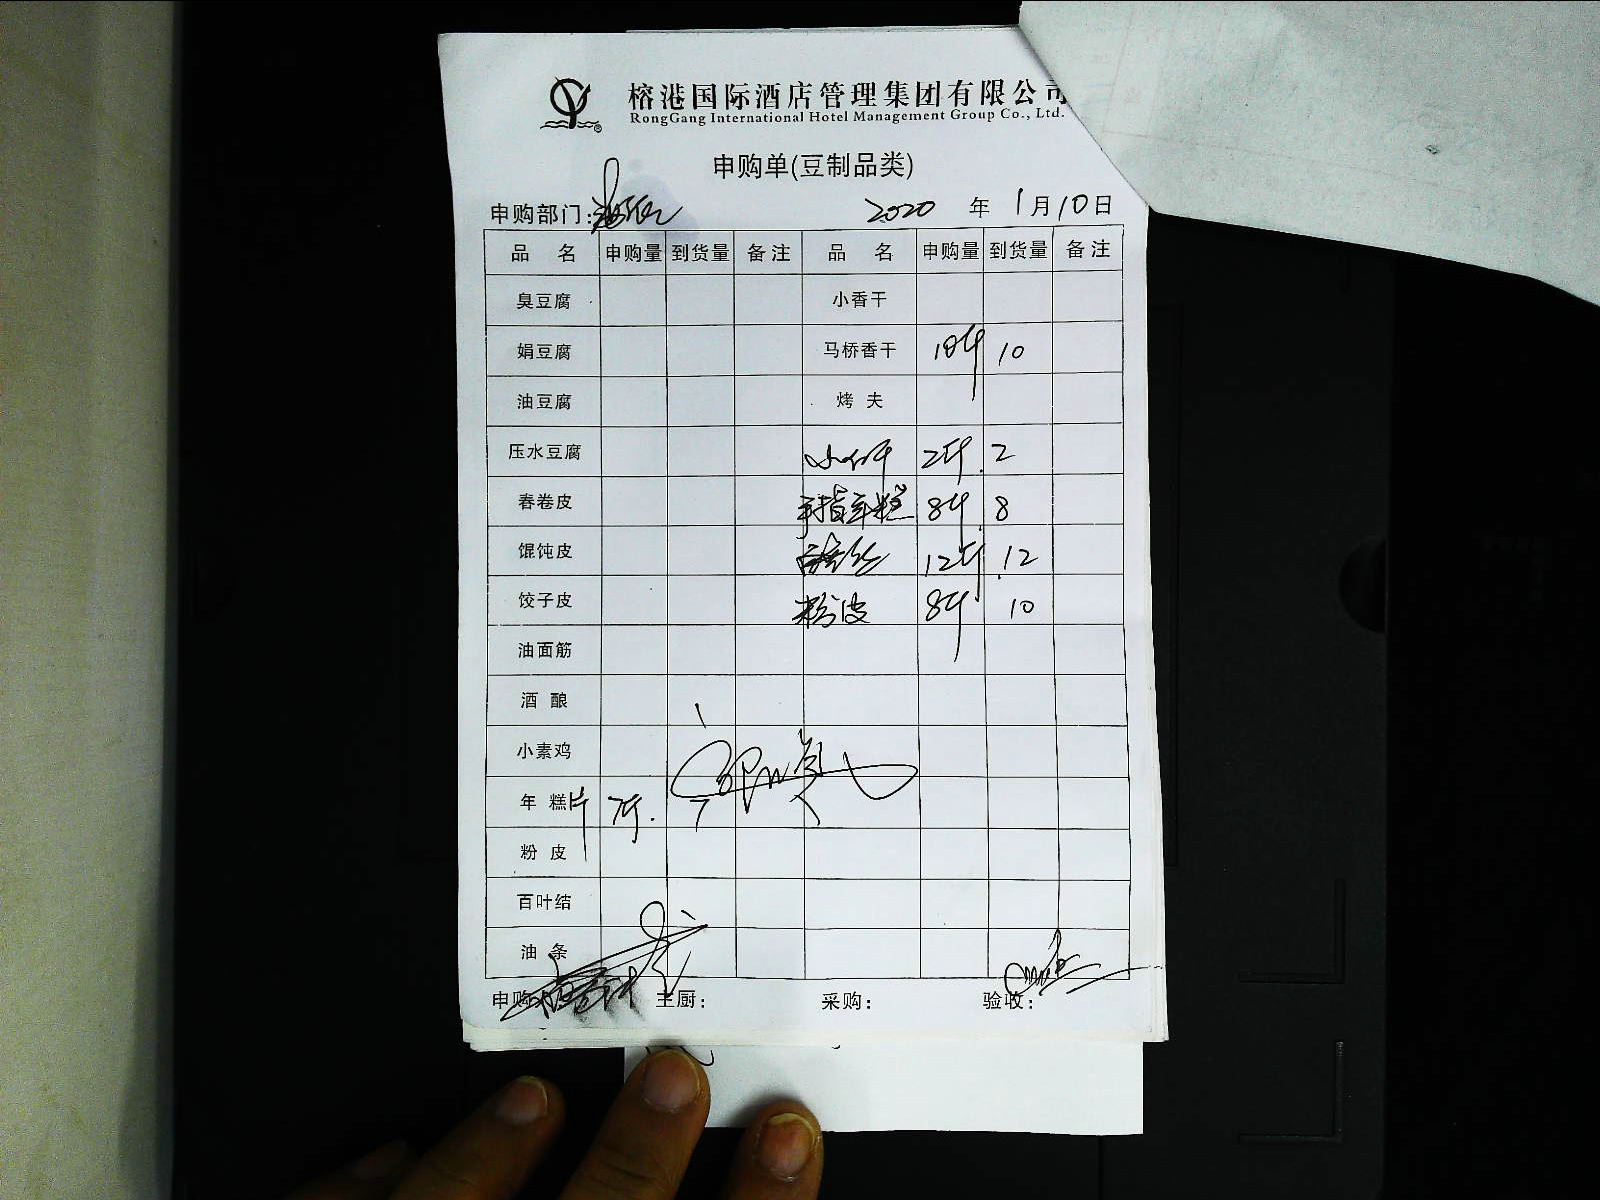 榕港国际酒店管理集团有限公司
RongGang International Hotel Management Group Co., Ltd.
申购单(豆制品类)
申购部门: 2020 年 1月10日
品 名 申购量 到货量 备注 品 名 申购量 到货量 备注
臭豆腐 小香干
娟豆腐 马桥香干 10斤 10
油豆腐 烤 夫
压水豆腐 2斤 2
春卷皮 手指年糕 8斤 8
馄饨皮 12斤 12
饺子皮 粉皮 8斤 10
油面筋
酒 酿
小素鸡
年 糕片 7斤 7
粉 皮
百叶结
油 条
申购 主厨: 采购: 验收: